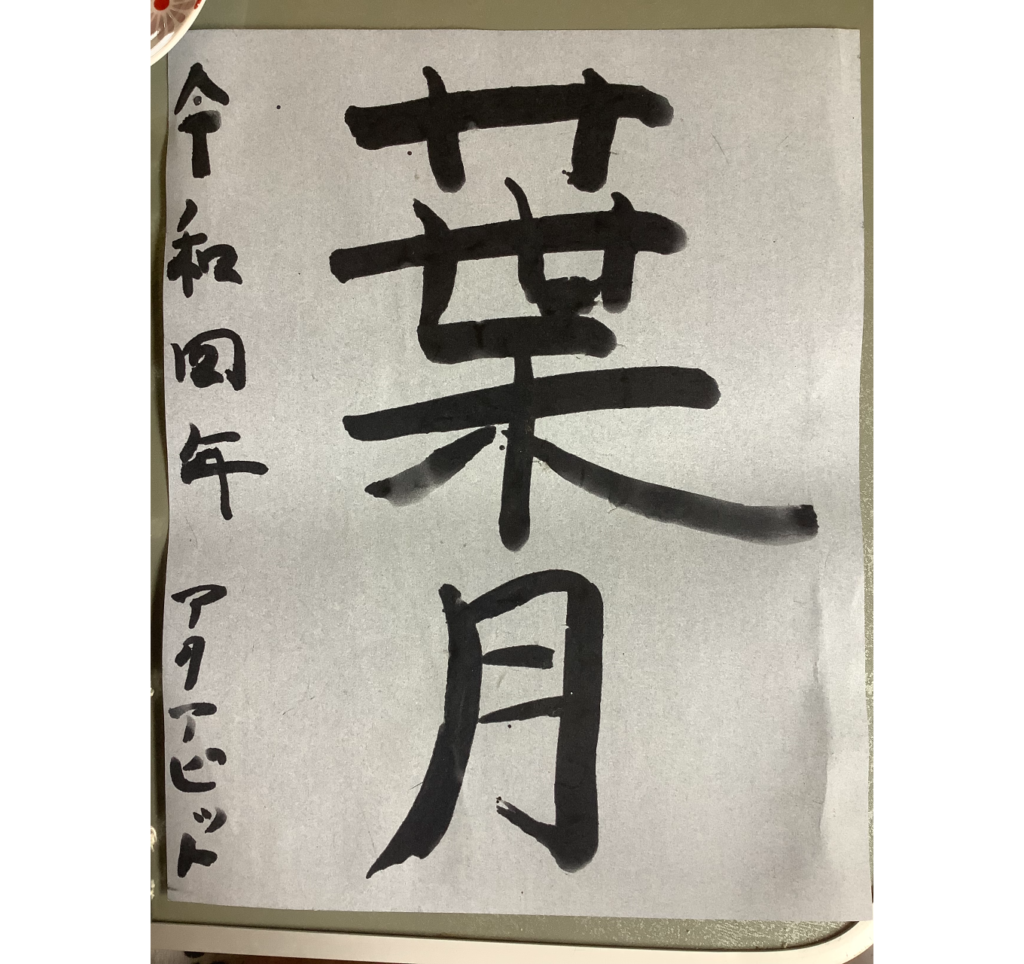 葉月
令和四年 アタアビット